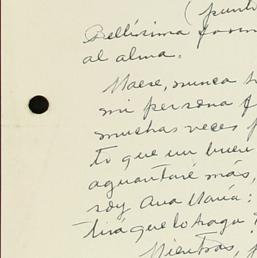 ( punto
Bellísima form
al alma.
Maese, nunca h
mi persona f
muchas veces p
to que un buen
aguantaré más,
soy Ana María:
tirá que lo haga
Mientras,